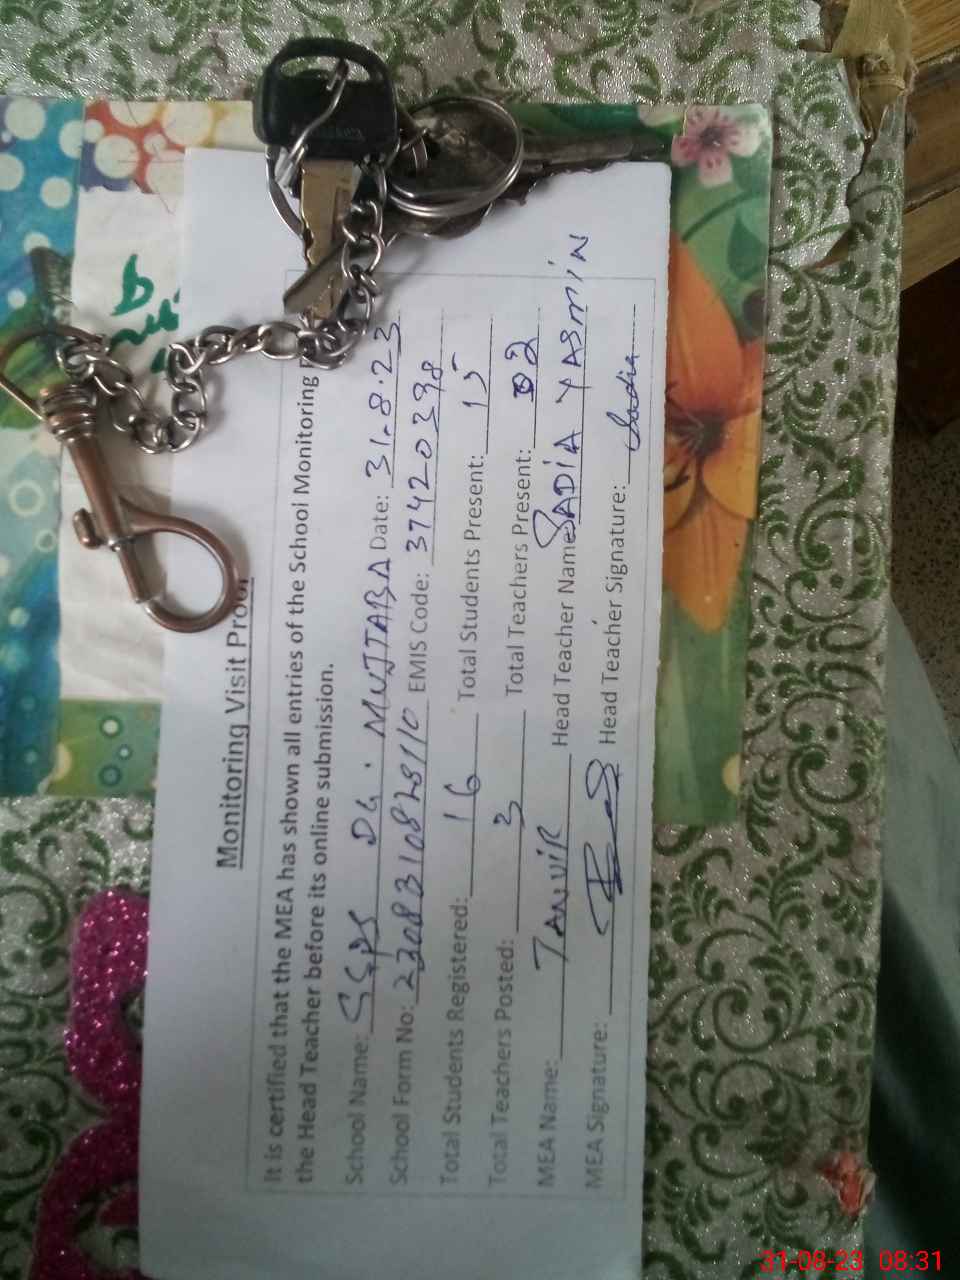 Monitoring Visit Proof
It is certified that the MEA has shown all entries of the School Monitoring
the Head Teacher before its online submission.
School Name: GGPS DG. MUJTABA Date: 31.8.23
School Form No: EMIS Code: 37420398
Total Students Registered: 16 Total Students Present: 15
Total Teachers Posted: 3 Total Teachers Present: 02
MEA Name: TANVIR Head Teacher Name SADIA YASMIN
MEA Signature: Head Teacher Signature: Sadia
31-08-23 08:31